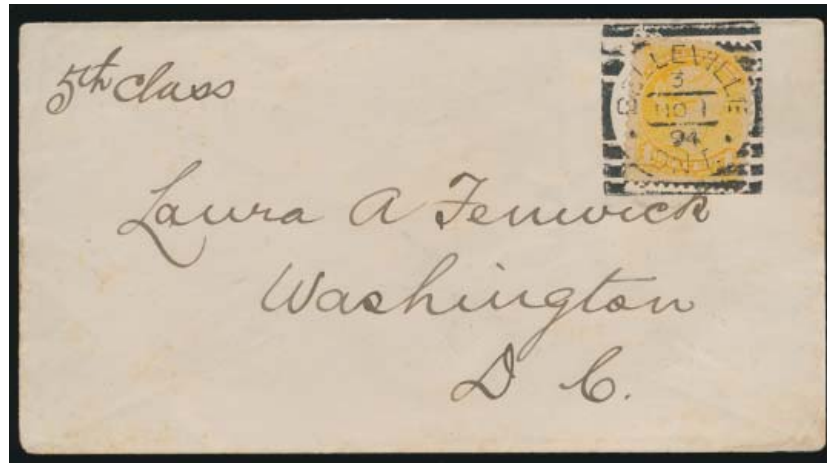 5th class
BELLEVILLE
3
NO 1
94
ONT.
Laura A Fenwick
Washington
D C.